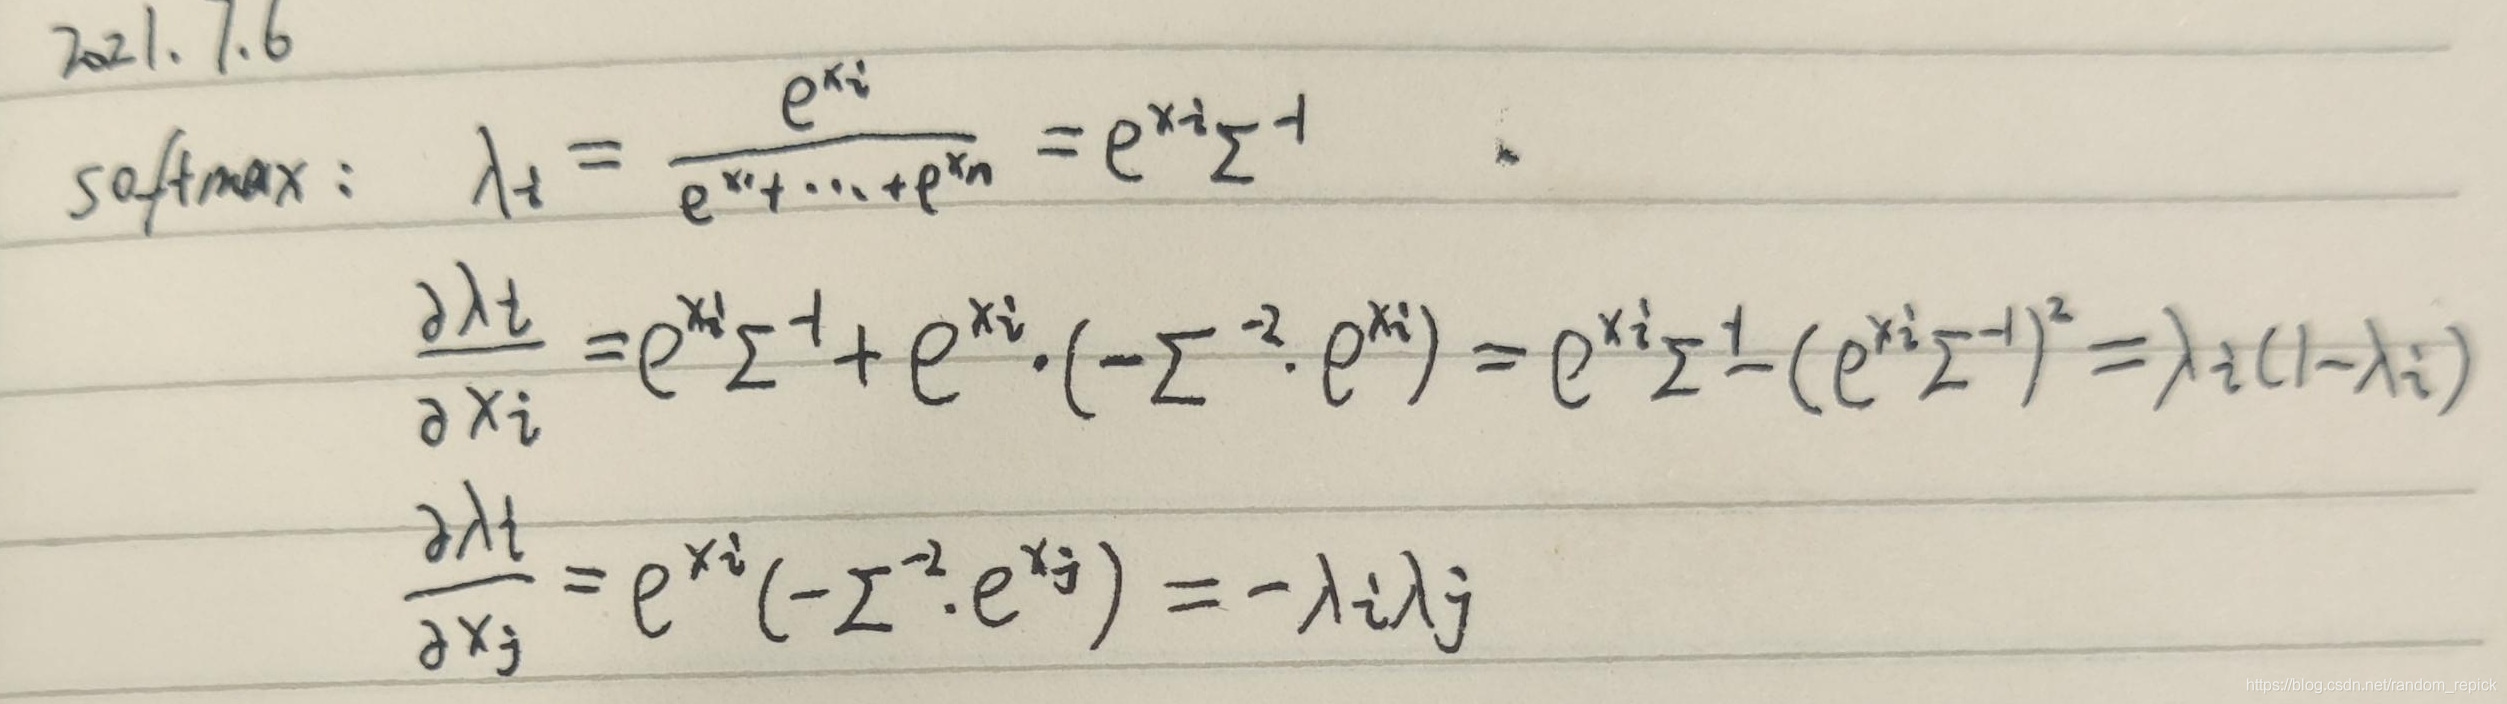 2021.7.6
softmax: λi = e^xi / (e^x1 + ... + e^xn) = e^xi Σ^-1
∂λi/∂xi = e^xi Σ^-1 + e^xi · (-Σ^-2 · e^xi) = e^xi Σ^-1 - (e^xi Σ^-1)^2 = λi(1-λi)
∂λi/∂xj = e^xi (-Σ^-2 · e^xj) = -λiλj
https://blog.csdn.net/random_repick